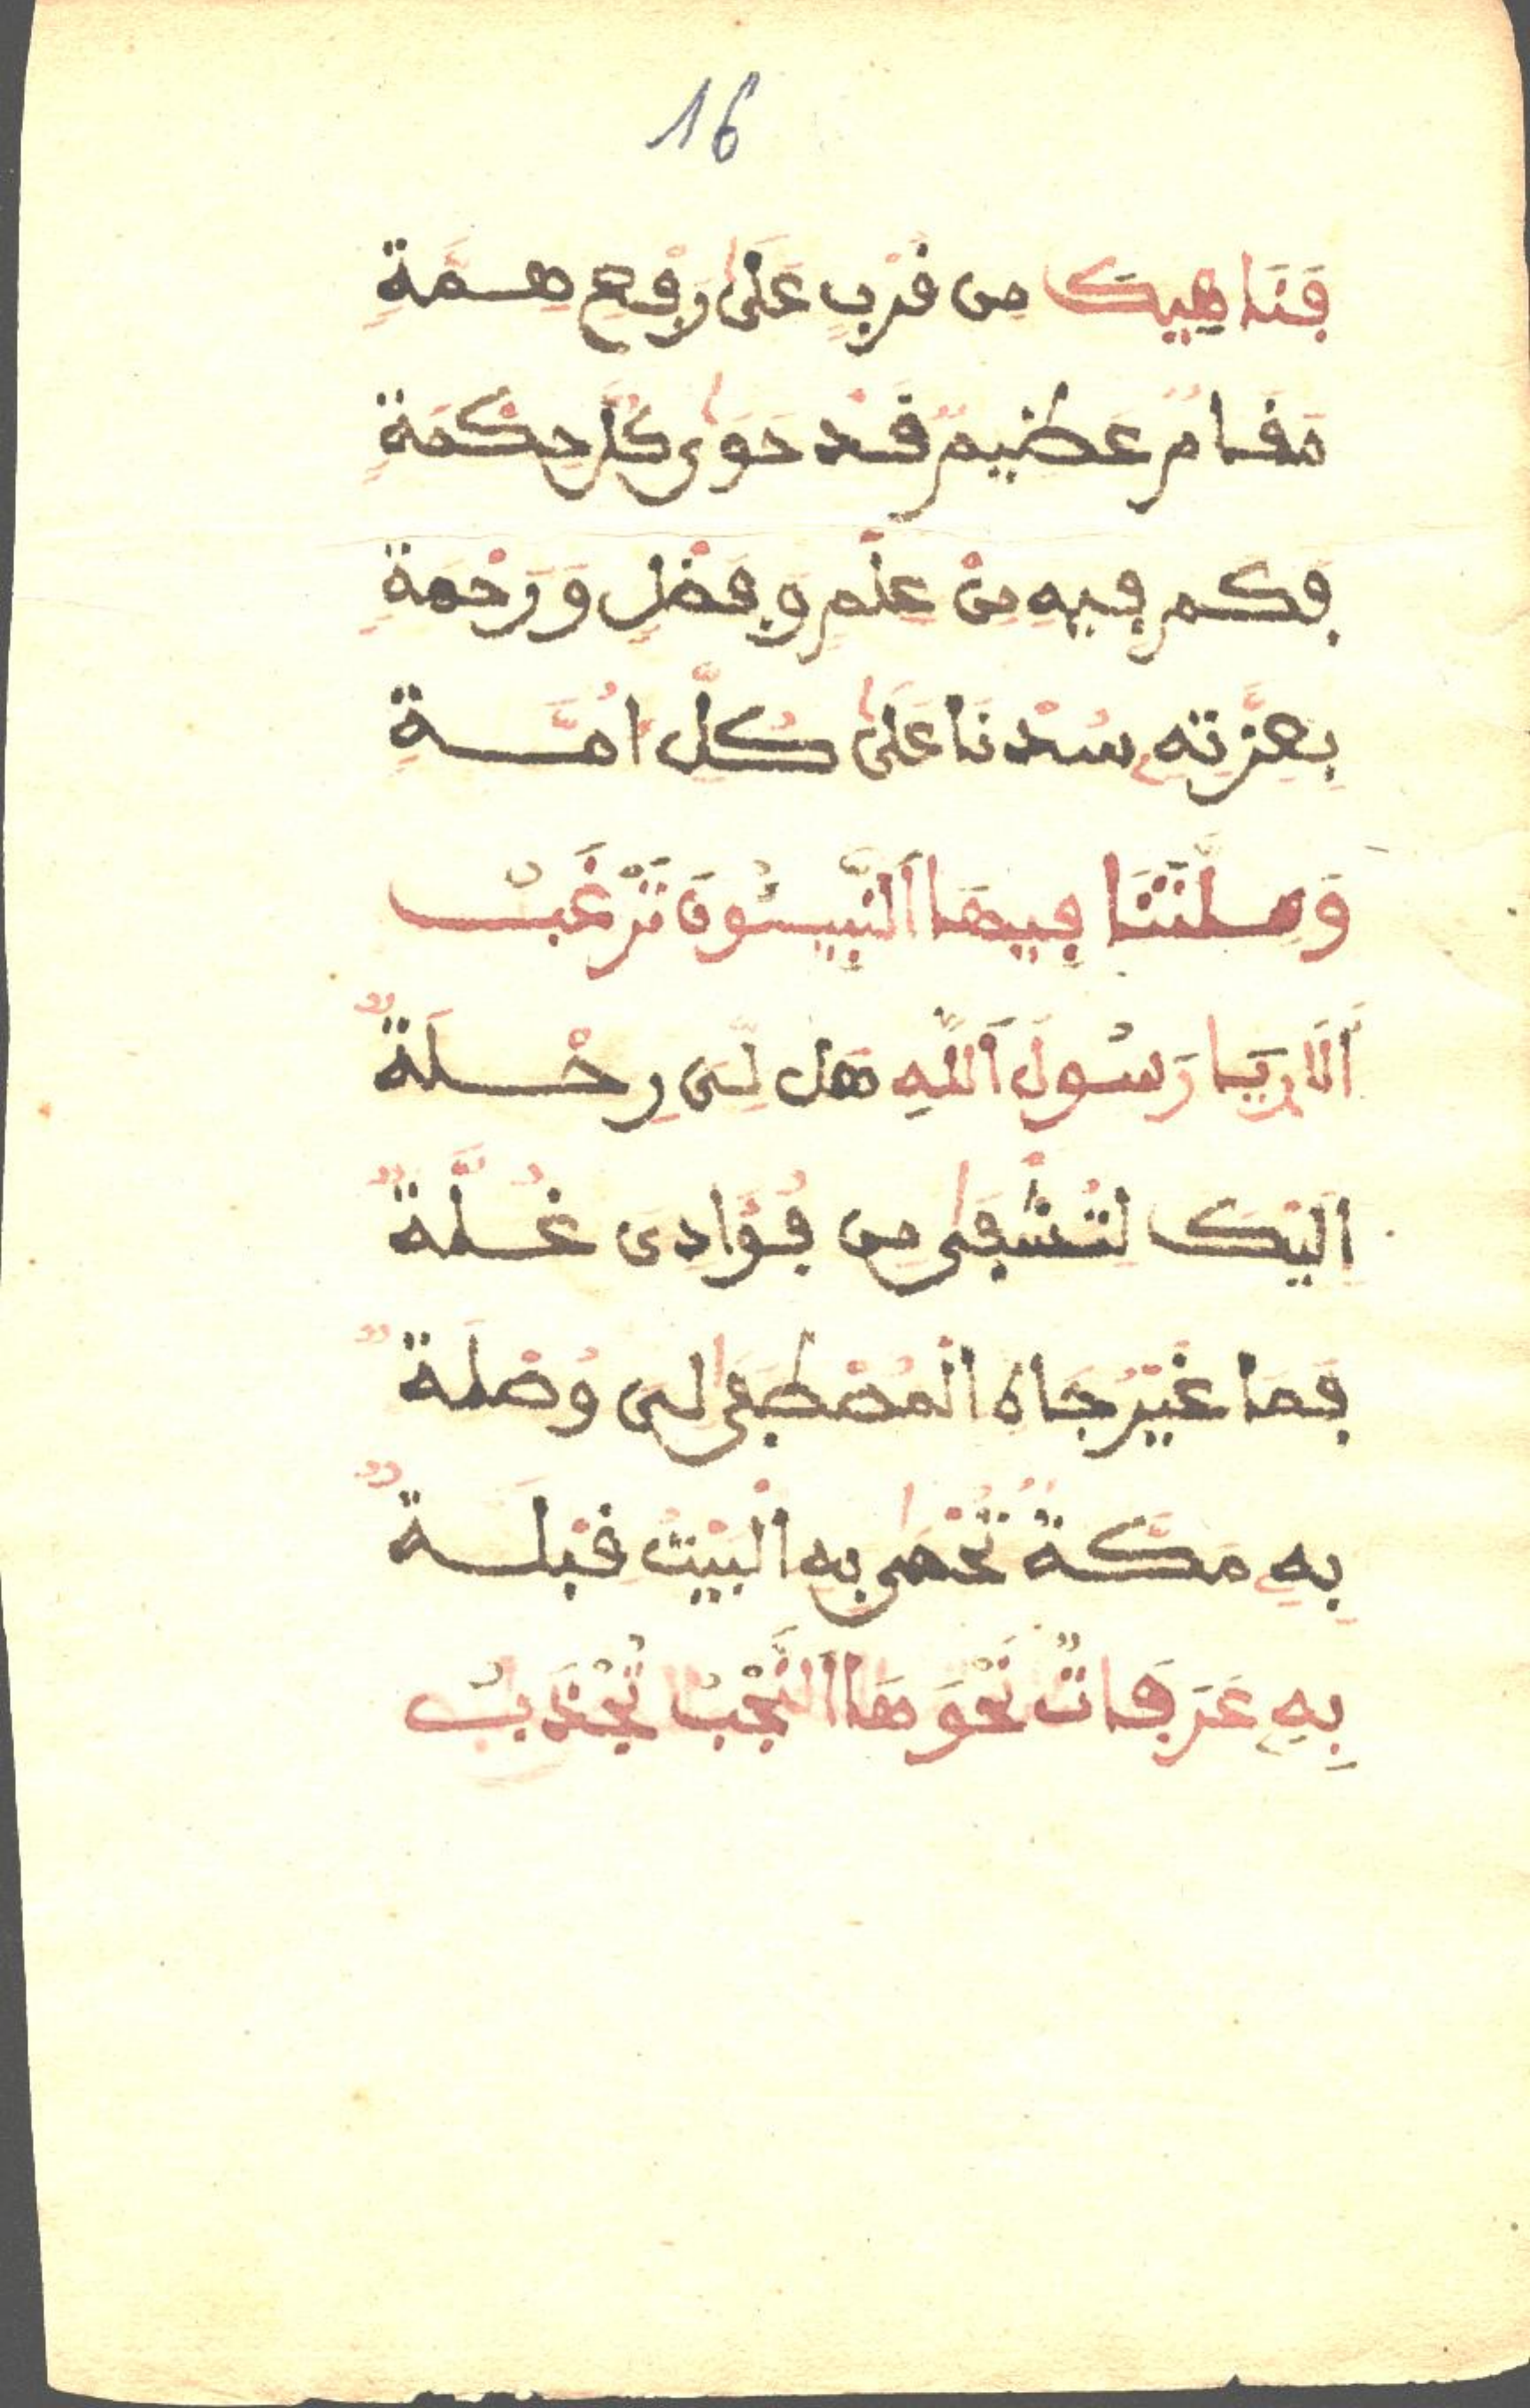 16
فَنَاهِيكَ مِن قُرْبٍ عَلَى رَفِعِ هِمَّةِ
مَقَامٌ عَظِيمٌ قَدْ حَوَى كُلَّ حِكْمَةِ
فَكَم فِيهِ مِنْ عِلْمٍ وَفَضْلٍ وَرَحْمَةِ
بِعِزَّتِهِ سُدْنَا عَلَى كُلِّ اُمَّةِ
وَمِلَّتُنَا فِيهَا النَّبِيئُونَ تَرْغَبُ
أَلَا يَا رَسُولَ اللَّهِ هَل لِّى رِحْلَةٌ
اِلَيْكَ لِتُشْفَى مِن فُؤَادِى غُلَّةٌ
فَمَا غَيْرُ جَاهِ الْمُصْطَفَى لِى وُصْلَةٌ
بِهِ مَكَّةٌ تُحْمَى بِهِ الْبَيْتُ قِبْلَةٌ
بِهِ عَرَفَاتٌ نَحْوَهَا النُّجْبُ تُجْذَبُ